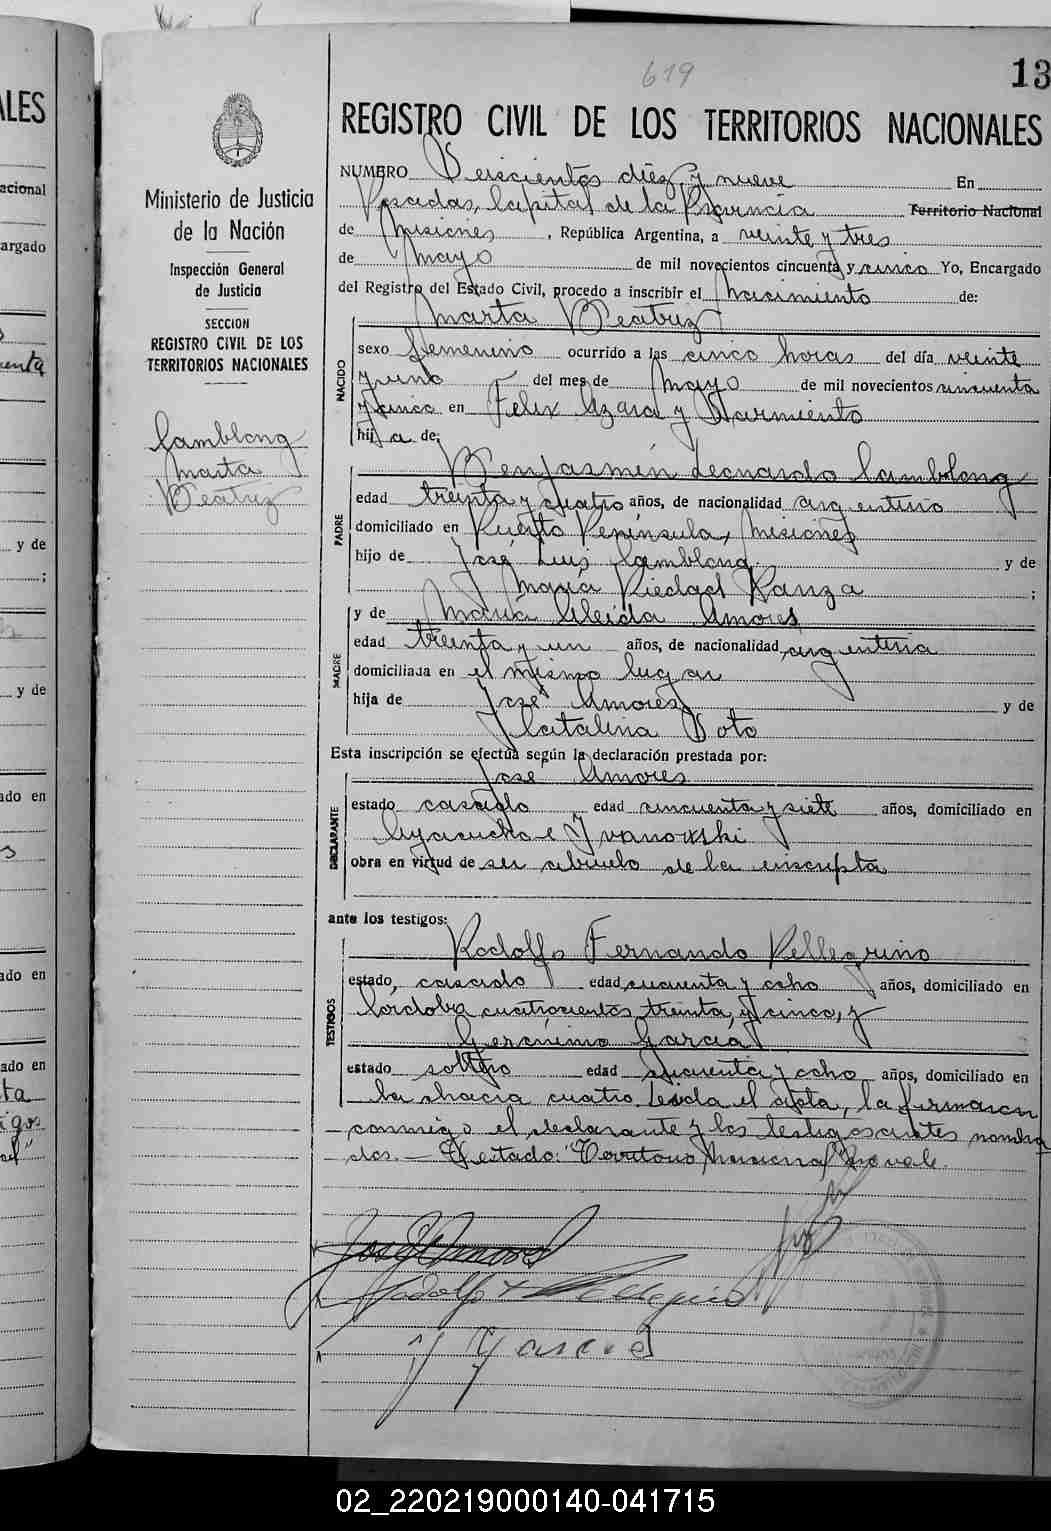 619
13
REGISTRO CIVIL DE LOS TERRITORIOS NACIONALES
Ministerio de Justicia
de la Nación
Inspección General
de Justicia
SECCION
REGISTRO CIVIL DE LOS
TERRITORIOS NACIONALES
Lamblong
Marta
Beatriz
NUMERO Seiscientos diez y nueve En
Posadas, Capital de la Provincia Territorio Nacional
de Misiones, República Argentina, a veinte y tres
de Mayo de mil novecientos cincuenta y cinco Yo, Encargado
del Registro del Estado Civil, procedo a inscribir el Nacimiento de:
Marta Beatriz
NACIDO
sexo femenino ocurrido a las cinco horas del día veinte
y uno del mes de Mayo de mil novecientos cincuenta
y cinco en Felix Azara y Sarmiento
hija de:
Benjasmín Leonardo Lamblong
PADRE
edad treinta y cuatro años, de nacionalidad argentino
domiciliado en Puerto Península, Misiones
hijo de José Luis Lamblong y de
María Piedad Ranza;
y de María Aleida Amores
MADRE
edad treinta y un años, de nacionalidad argentina
domiciliada en el mismo lugar
hija de José Amores y de
Catalina Soto
Esta inscripción se efectúa según la declaración prestada por:
José Amores
DECLARANTE
estado casado edad cincuenta y siete años, domiciliado en
Ayacucho e Yvanowski
obra en virtud de ser abuelo de la inscripta
ante los testigos:
Rodolfo Fernando Pellegrino
TESTIGOS
estado, casado edad cuarenta y ocho años, domiciliado en
Córdoba cuatrocientos treinta y cinco, y
Gerónimo García
estado soltero edad cincuenta y ocho años, domiciliado en
la chacra cuatro. Leída el acta, la firmaron
conmigo el declarante y los testigos antes nombra
dos. — Testado: "Territorio Nacional" no vale.
José Amores
Rodolfo F Pellegrino
J Garcia
ALES
acional
argado
enta
y de
;
y de
ado en
s
ado en
ado en
ta
igos
02_220219000140-041715